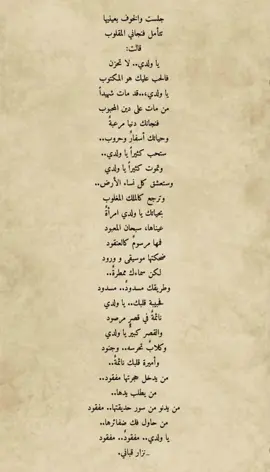 جلست والخوف بعينيها
تتأمل فنجاني المقلوب
قالت:
يا ولدي.. لا تحزن
فالحب عليك هو المكتوب
يا ولدي،..قد مات شهيداً
من مات على دين المحبوب
فنجانك دنيا مرعبةٌ
وحياتك أسفارٌ وحروب..
ستحب كثيراً يا ولدي..
وتموت كثيراً يا ولدي
وستعشق كل نساء الأرض..
وترجع كالملك المغلوب
بحياتك يا ولدي امرأةٌ
عيناها، سبحان المعبود
فمها مرسومٌ كالعنقود
ضحكتها موسيقى و ورود
لكن سماءك ممطرةٌ..
وطريقك مسدودٌ.. مسدود
فحبيبة قلبك.. يا ولدي
نائمةٌ في قصرٍ مرصود
والقصر كبيرٌ يا ولدي
وكلابٌ تحرسه.. وجنود
وأميرة قلبك نائمةٌ..
من يدخل حجرتها مفقود..
من يطلب يدها..
من يدنو من سور حديقتها.. مفقود
من حاول فك ضفائرها..
يا ولدي.. مفقودٌ.. مفقود
..نزار قباني.